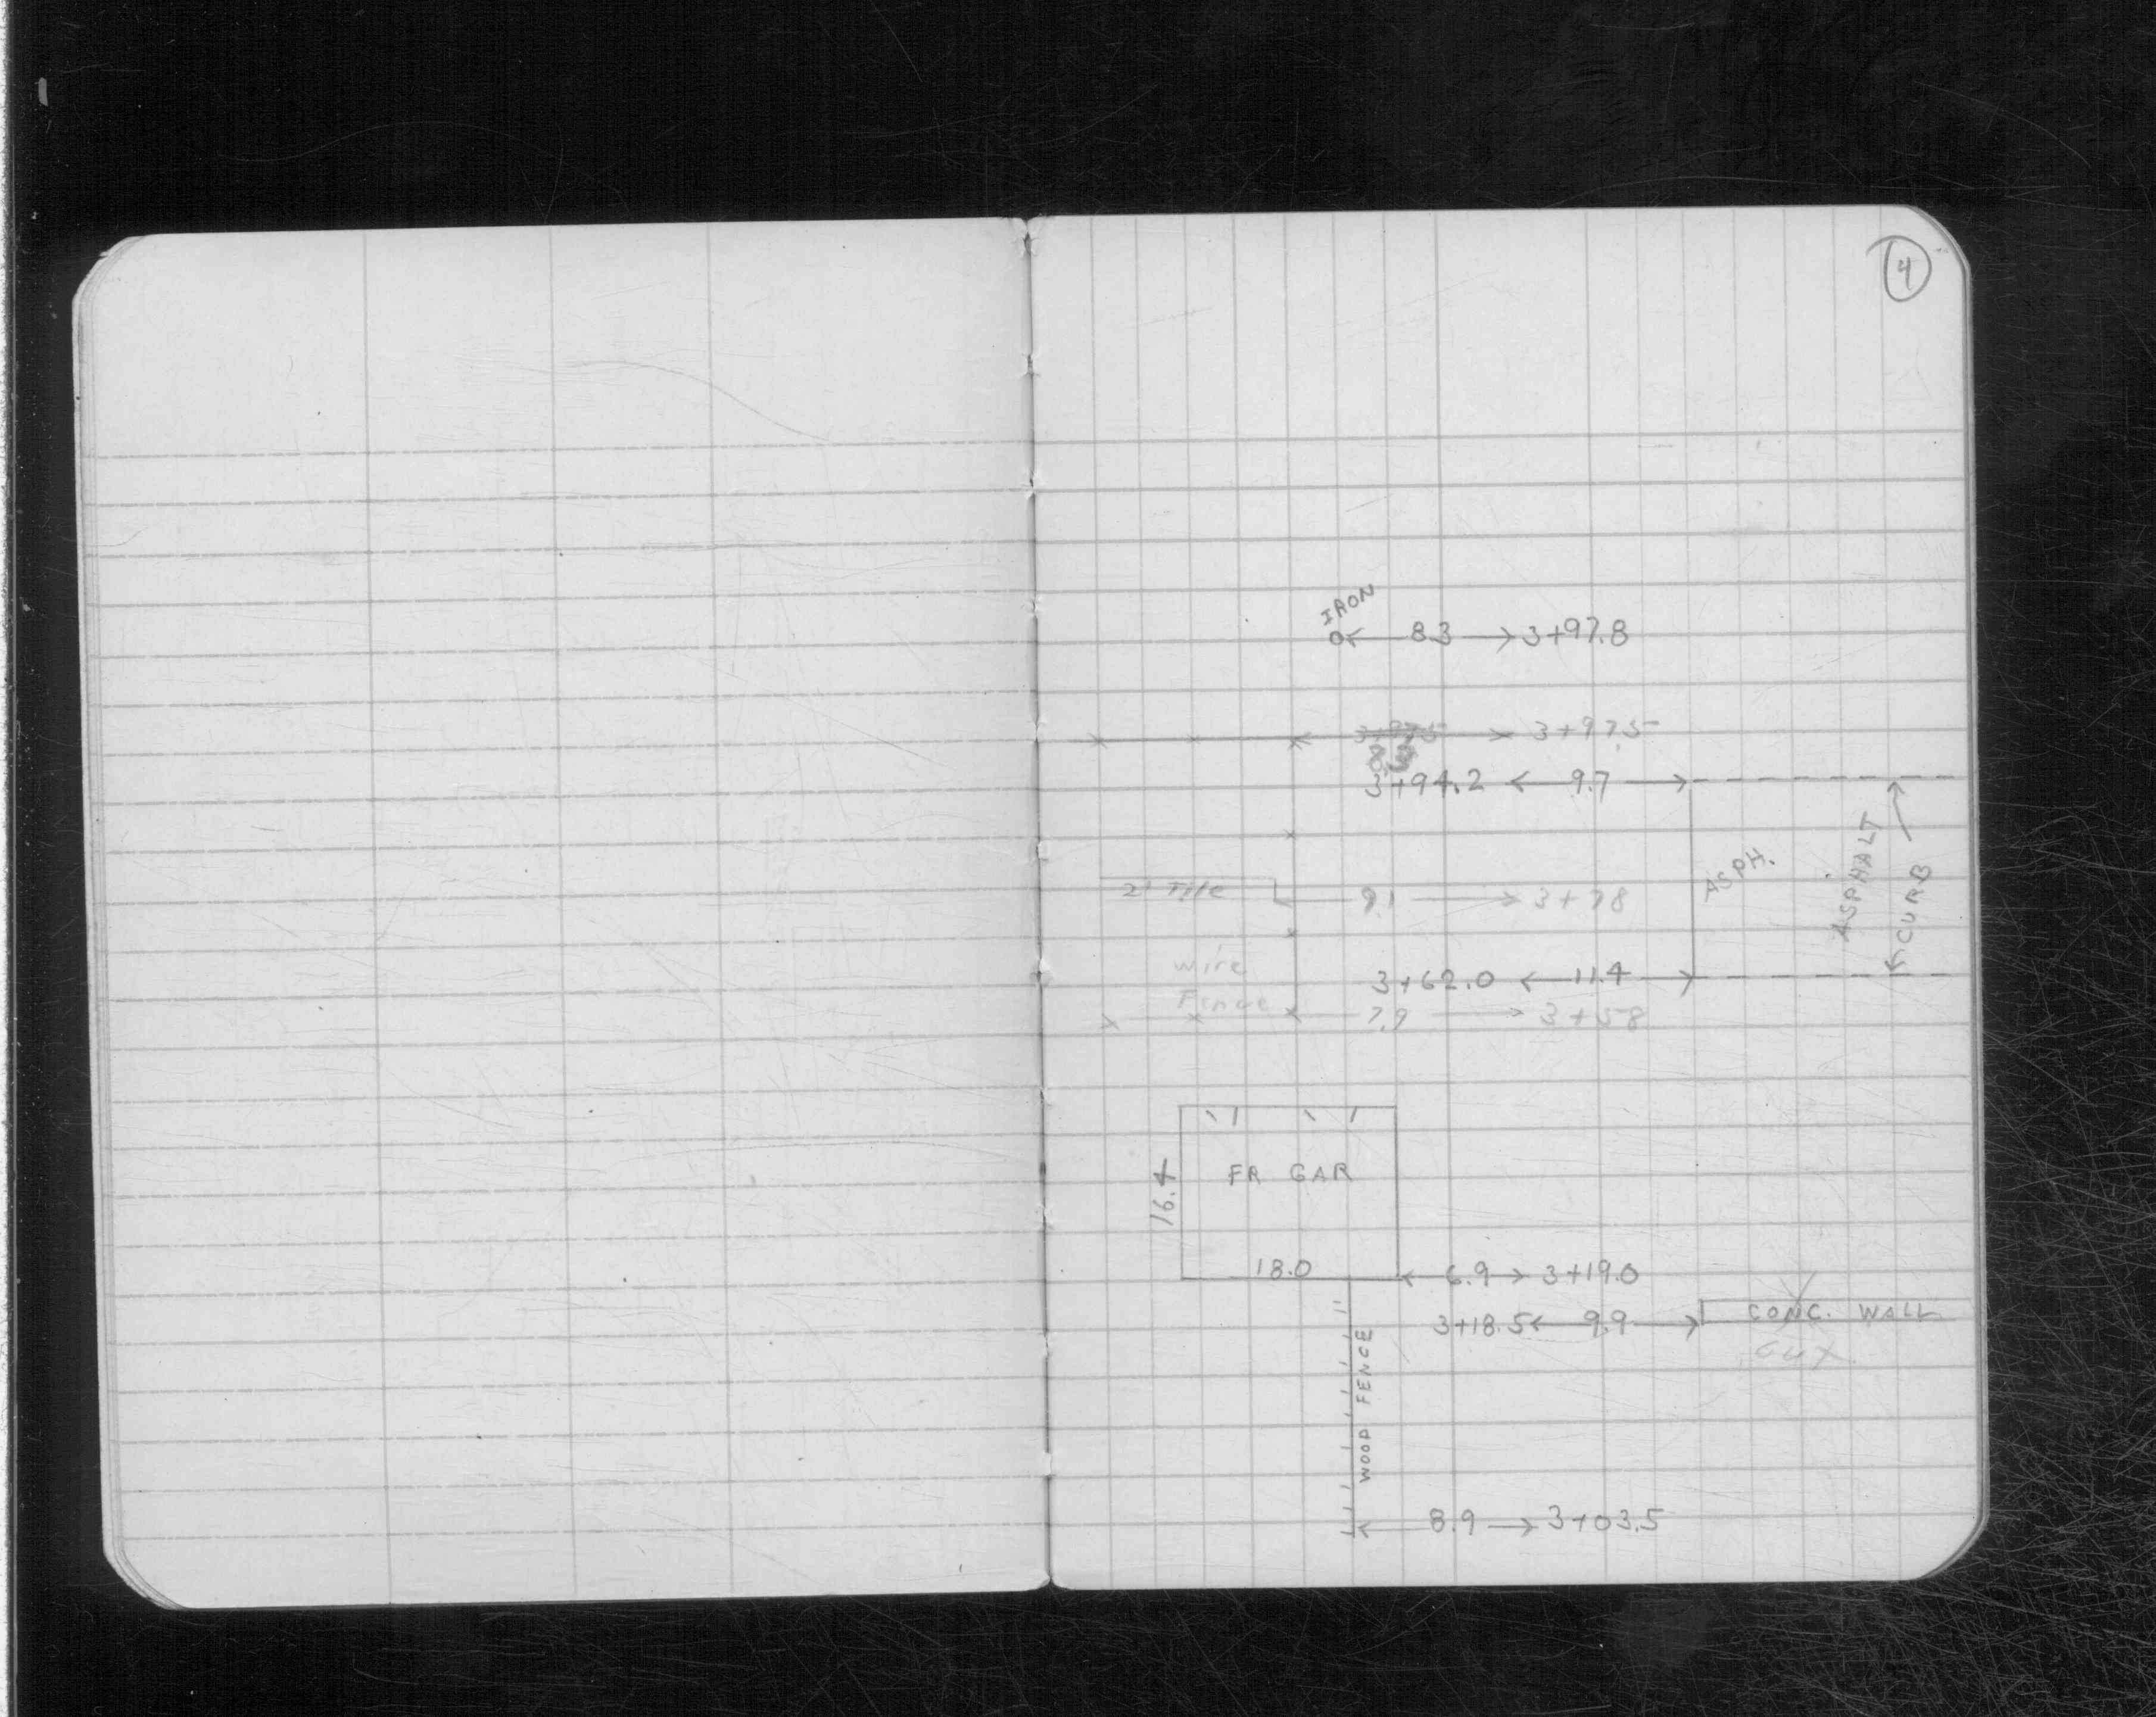 4
IRON
8.3 3+97.8
3+97.5
3+94.2 9.7
ASPHALT
ASPH.
CURB
2" Tile 9.1 3+78
Wire
Fence
3+62.0 11.4
7.9 3+58
FR GAR
16.4
18.0
6.9 3+19.0
3+18.5 9.9 CONC. WALL
WOOD FENCE
8.9 3+03.5